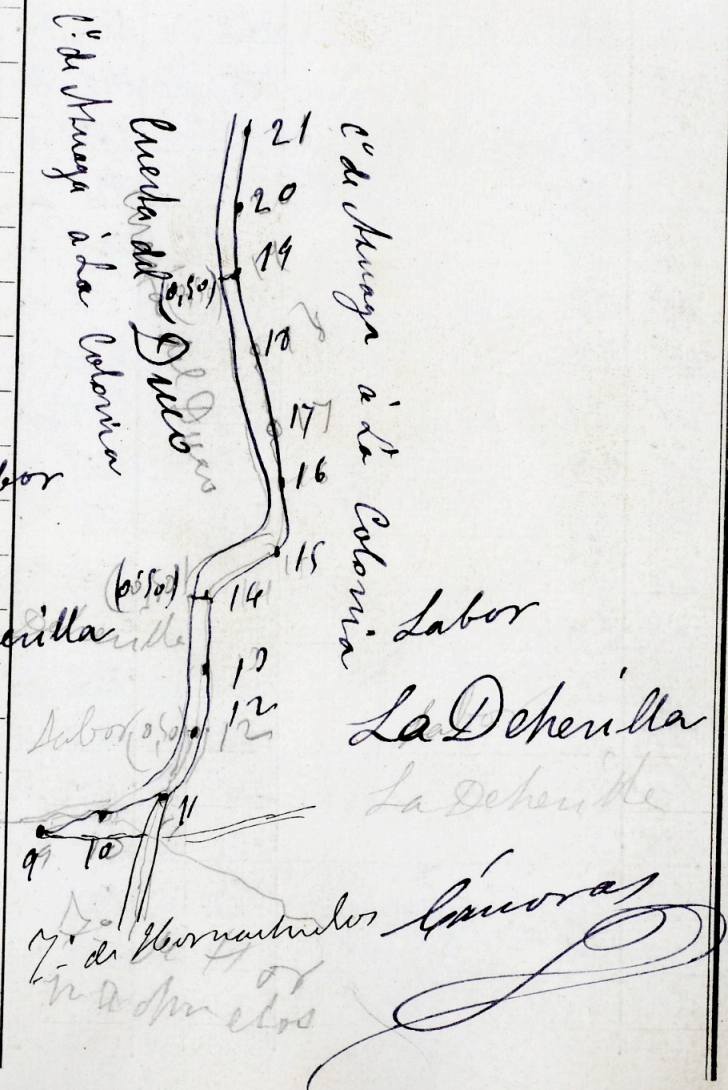 C.º de Azuaga à La Colonia
Cuesta del Duco
Cº de Azuaga à La Colonia
21
20
19
(0,50)
18
17
16
15
(0,50)
14
13
12
11
10
9
bor
erilla
Labor
La Deherilla
Labor (0,50) 12
La Deherilla
T.º de Hornachuelos
Cánovas